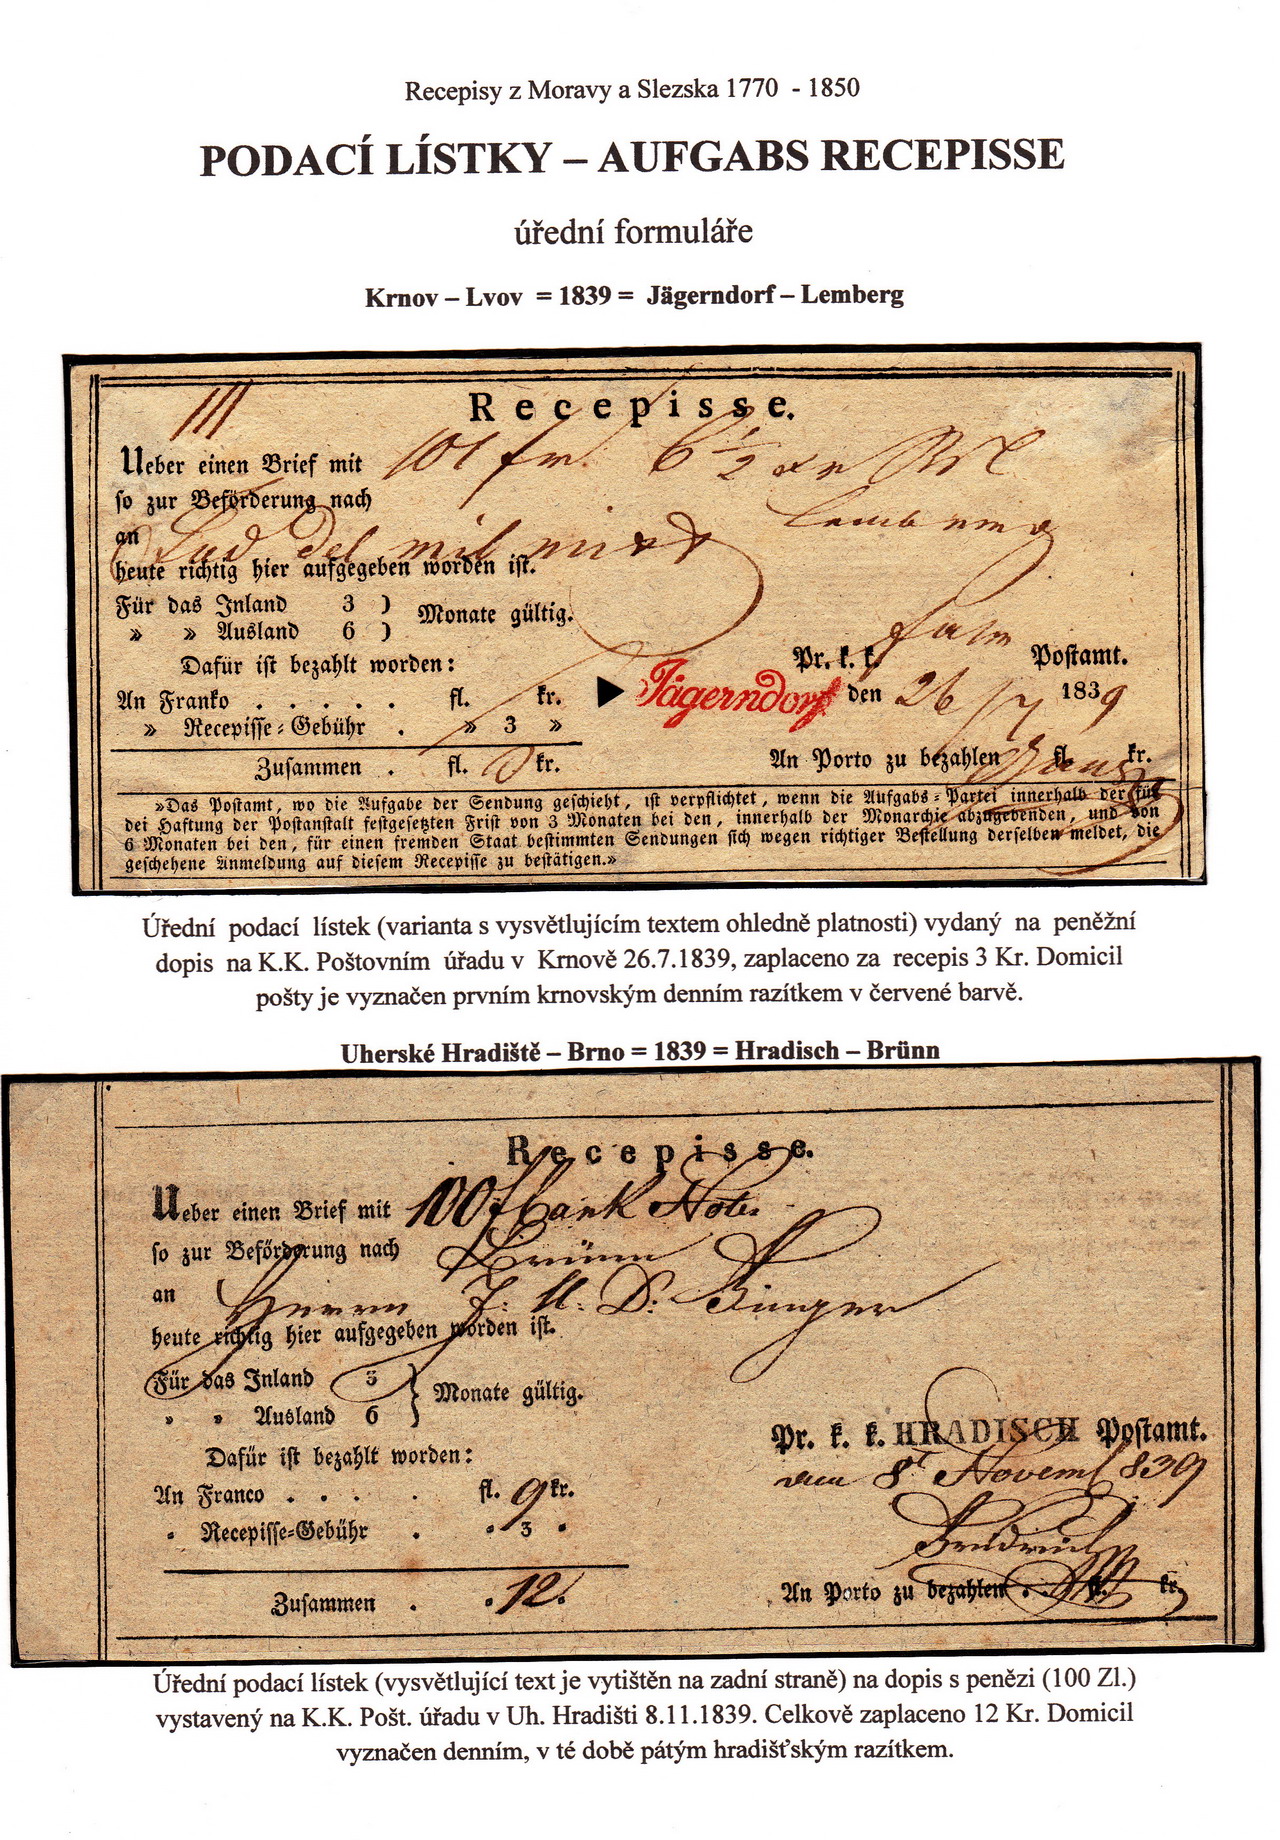 Recepisy z Moravy a Slezska 1770 - 1850
PODACÍ LÍSTKY – AUFGABS RECEPISSE
úřední formuláře
Krnov – Lvov = 1839 = Jägerndorf – Lemberg
Recepisse.
Ueber einen Brief mit 101 fr. 6 1/2 xr
so zur Beförderung nach Lemberg
an
heute richtig hier aufgegeben worden ist.
Für das Inland 3 ) Monate gültig.
» » Ausland 6 )
Dafür ist bezahlt worden:
Pr. k. k. Postamt.
An Franko . . . . . fl. kr.
Jägerndorf den 26/7 1839
» Recepisse-Gebühr . » 3 »
Zusammen . fl. 3 kr.
An Porto zu bezahlen fl. kr.
»Das Postamt, wo die Aufgabe der Sendung geschieht, ist verpflichtet, wenn die Aufgabs-Partei innerhalb der für
bei Haftung der Postanstalt festgesetzten Frist von 3 Monaten bei den, innerhalb der Monarchie abzugebenden, und von
6 Monaten bei den, für einen fremden Staat bestimmten Sendungen sich wegen richtiger Bestellung derselben meldet, die
geschehene Anmeldung auf diesem Recepisse zu bestätigen.»
Úřední podací lístek (varianta s vysvětlujícím textem ohledně platnosti) vydaný na peněžní
dopis na K.K. Poštovním úřadu v Krnově 26.7.1839, zaplaceno za recepis 3 Kr. Domicil
pošty je vyznačen prvním krnovským denním razítkem v červené barvě.
Uherské Hradiště – Brno = 1839 = Hradisch – Brünn
Recepisse.
Ueber einen Brief mit 100 f bank Noten
so zur Beförderung nach Brünn
an Herrn J: U: D: Singer
heute richtig hier aufgegeben worden ist.
Für das Inland 3 } Monate gültig.
» » Ausland 6
Dafür ist bezahlt worden:
Pr. k. k. HRADISCH Postamt.
den 8t Novemb 839
An Franco . . . . fl. 9 kr.
» Recepisse-Gebühr . » 3 »
Friedrich
Zusammen . » 12 »
An Porto zu bezahlen . . fl. kr.
Úřední podací lístek (vysvětlující text je vytištěn na zadní straně) na dopis s penězi (100 Zl.)
vystavený na K.K. Pošt. úřadu v Uh. Hradišti 8.11.1839. Celkově zaplaceno 12 Kr. Domicil
vyznačen denním, v té době pátým hradišťským razítkem.